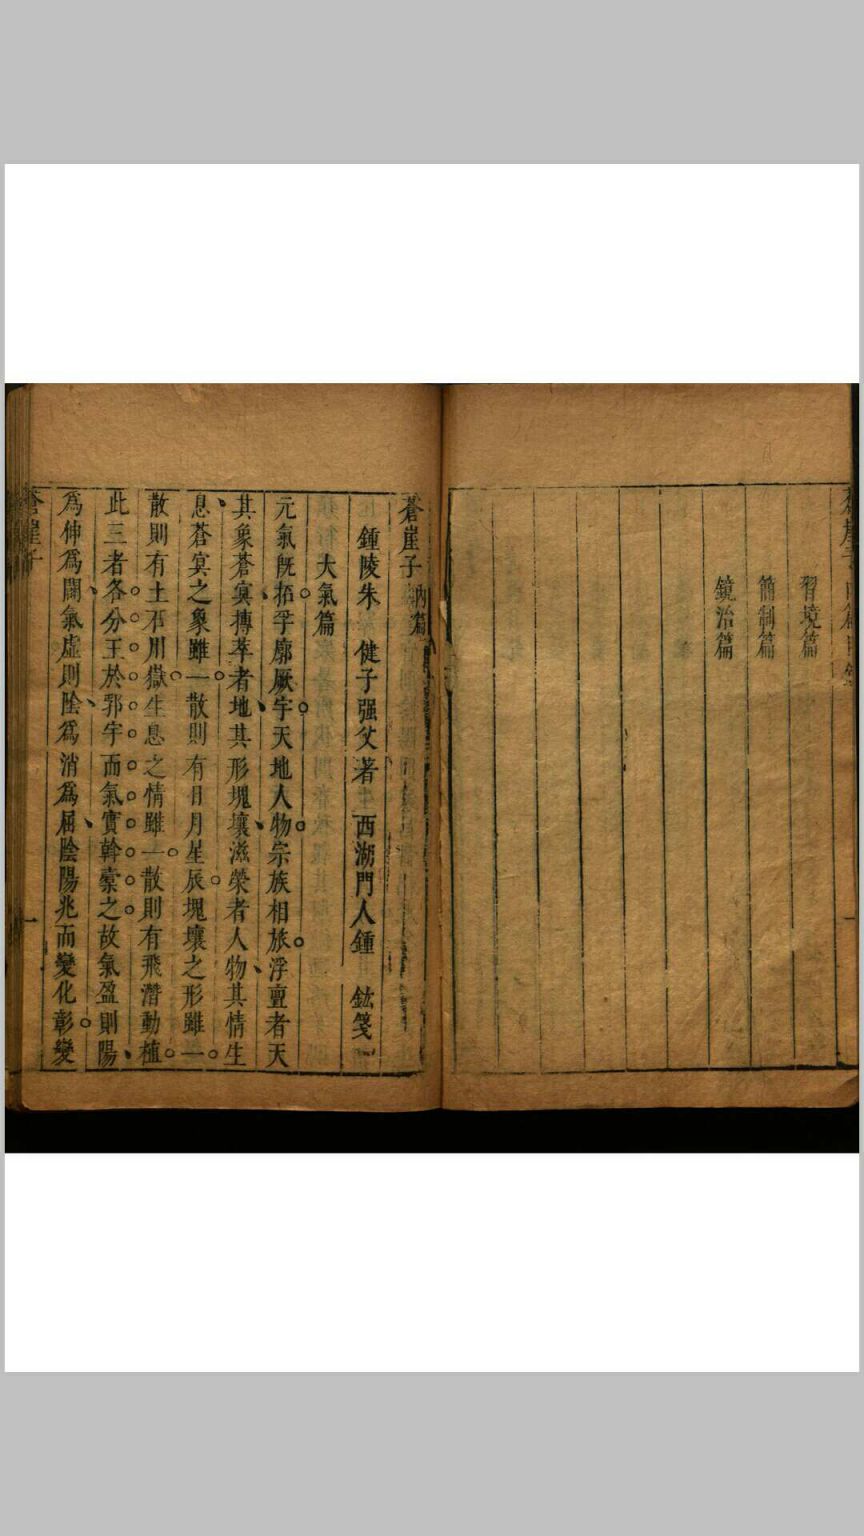 習境篇
簡制篇
鏡治篇
蒼崖子內篇
鍾陵朱 健子强父著 西湖門人鍾 鉉箋
大氣篇
元氣旣拓乎廓厥宇天地人物宗族相旅浮亶者天
其象蒼寞摶萃者地其形塊壤滋榮者人物其情生
息蒼寞之象雖一散則有日月星辰塊壤之形雖一
散則有土石川嶽生息之情雖一散則有飛潛動植
此三者各分王於郛宇而氣實幹橐之故氣盈則陽
爲伸爲闢氣虛則陰爲消爲屈陰陽兆而變化彰變
蒼崖子
一